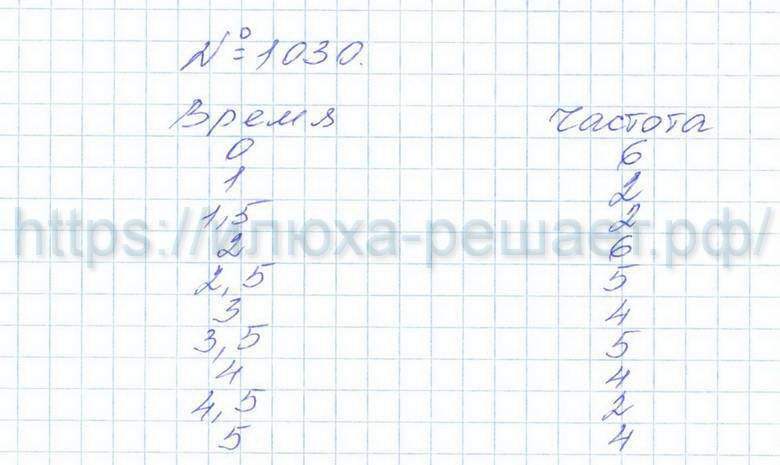 № 1030.
Время Частота
0 6
1 2
1,5 2
2 6
2,5 5
3 4
3,5 5
4 4
4,5 2
5 4
https://илюха-решает.рф/